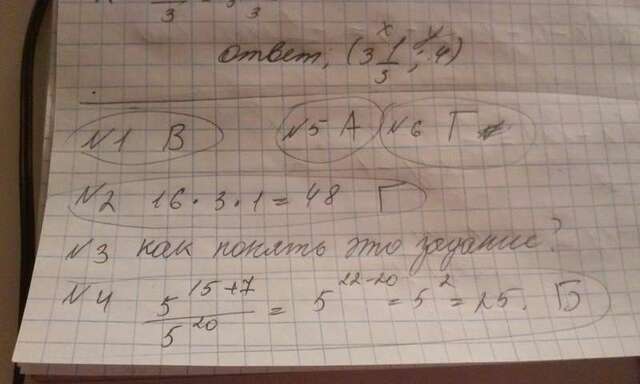 3 3 3
Ответ, (3 1/3 ; 4)
x y
N1 В N5 А N6 Г
N2 16 · 3 · 1 = 48 Г
N3 как понять это задание?
N4 5^(15+7) / 5^20 = 5^(22-20) = 5^2 = 25. Б